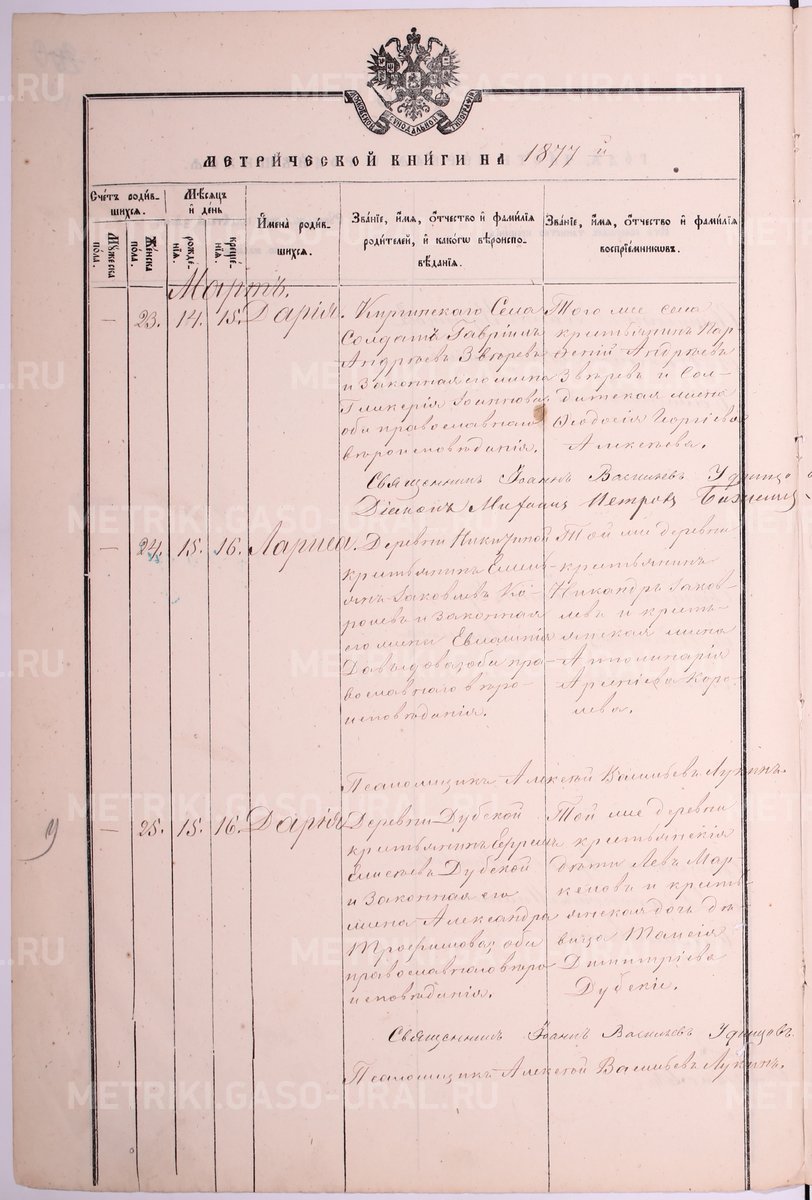 МОСКОВСКОЙ СУНОДАЛЬНОЙ ТИПОГРАФІИ
МЕТРИЧЕСКОЙ КНИГИ НА 1877 й
Счетъ родив-
шихся.
Мѣсяцъ
и день
Имена родив-
шихся.
Званіе, имя, отчество и фамилія
родителей, и какого вѣроиспо-
вѣданія.
Званіе, имя, отчество и фамилія
воспріемниковъ.
Мужеска
пола.
Женска
пола.
рожде-
нія.
креще-
нія.
Мартъ.
— 23. 14. 15. Дарія.
Киргинскаго Села
Солдатъ Гавріилъ
Андреевъ Звѣревъ
и законная его жена
Гликерія Іоаннова,
оба православнаго
вѣроисповѣданія.
Того же села
крестьянинъ
Андреевъ
Звѣревъ и Сол-
датская жена
Ѳеодосія Георгіева
Алексѣева.
Священникъ Іоаннъ Васильевъ Удинцо
Діаконъ Михаилъ Петровъ
— 24. 15. 16. Лариса.
Деревни Никитиной
крестьянинъ Емель-
янъ Іаковлевъ Ко-
ролевъ и законная
его жена Евлампія
Давыдова, оба пра-
вославнаго вѣро-
исповѣданія.
Той же деревни
крестьянинъ
Никандръ Іаков-
левъ и кресть-
янская жена
Апполинарія
Арсеніева Коро-
лева.
Псаломщикъ Алексѣй Васильевъ Лукинъ.
— 25. 15. 16. Дарія
Деревни Дубской
крестьянинъ Ефремъ
Елисѣевъ Дубской
и законная его
жена Александра
Трофимова, оба
православнаго вѣро
исповѣданія.
Той же деревни
крестьянскія
дѣти Левъ Мар
келовъ и кресть
янская дочь дѣ-
вица Таисія
Димитріева
Дубскіе.
Священникъ Іоаннъ Васильевъ Удинцовъ.
Псаломщикъ Алексѣй Васильевъ Лукинъ.
METRIKI.GASO-URAL.RU